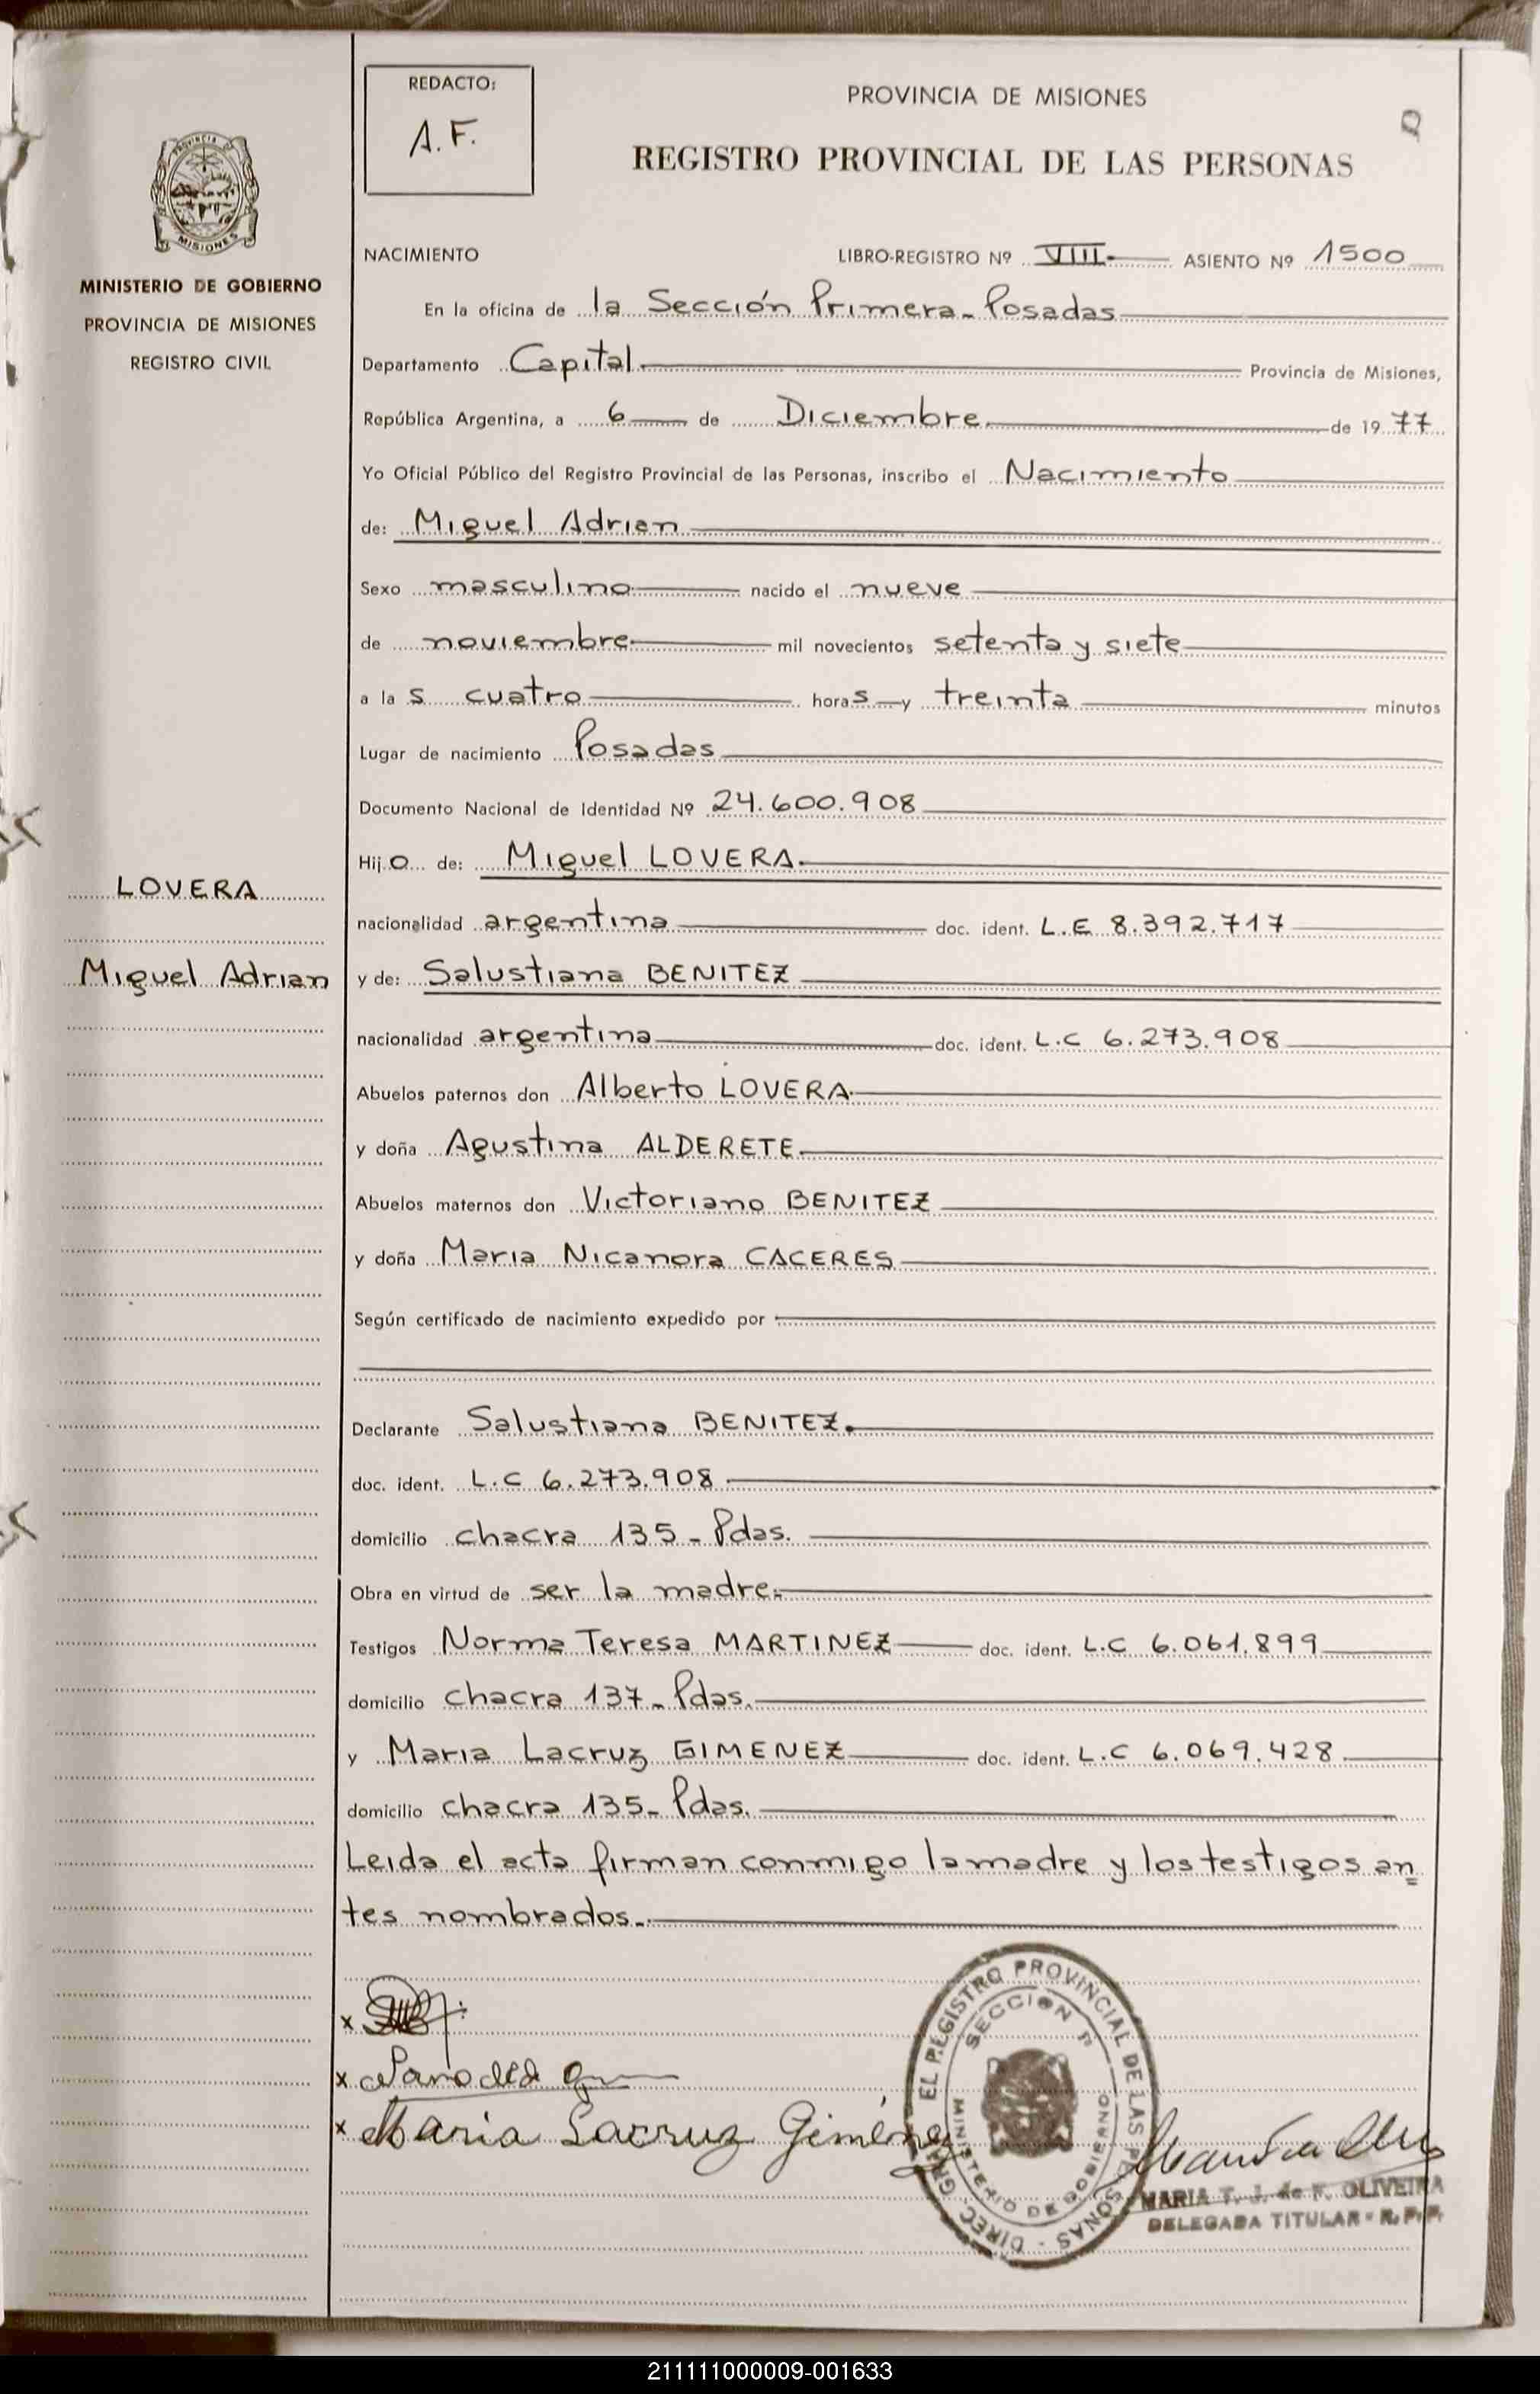 REDACTO:
A.F.
PROVINCIA DE MISIONES
REGISTRO PROVINCIAL DE LAS PERSONAS
MISIONES
MINISTERIO DE GOBIERNO
PROVINCIA DE MISIONES
REGISTRO CIVIL
NACIMIENTO LIBRO-REGISTRO Nº VIII ASIENTO Nº 1500
En la oficina de la Sección Primera - Posadas
Departamento Capital. Provincia de Misiones,
República Argentina, a 6 de Diciembre de 1977
Yo Oficial Público del Registro Provincial de las Personas, inscribo el Nacimiento
de: Miguel Adrian
Sexo masculino nacido el nueve
de noviembre mil novecientos setenta y siete
a las cuatro horas y treinta minutos
Lugar de nacimiento Posadas
Documento Nacional de Identidad Nº 24.600.908
Hijo de: Miguel LOVERA
nacionalidad argentina doc. ident. L.E 8.392.717
y de: Salustiana BENITEZ
nacionalidad argentina doc. ident. L.C 6.273.908
Abuelos paternos don Alberto LOVERA
y doña Agustina ALDERETE
Abuelos maternos don Victoriano BENITEZ
y doña Maria Nicanora CACERES
Según certificado de nacimiento expedido por
Declarante Salustiana BENITEZ.
doc. ident. L.C 6.273.908
domicilio chacra 135 - Pdas.
Obra en virtud de ser la madre.
Testigos Norma Teresa MARTINEZ doc. ident. L.C 6.061.899
domicilio chacra 137 - Pdas.
y Maria Lacruz GIMENEZ doc. ident. L.C 6.069.428
domicilio chacra 135 - Pdas.
Leida el acta firman conmigo la madre y los testigos an
tes nombrados.
LOVERA
Miguel Adrian
x
x
x Maria Lacruz Giménez
DIREC. GRAL. DEL REGISTRO PROVINCIAL DE LAS PERSONAS
SECCION 1ª
MINISTERIO DE GOBIERNO
MARIA T. J. de F. OLIVEIRA
DELEGADA TITULAR - R.P.P.
211111000009-001633